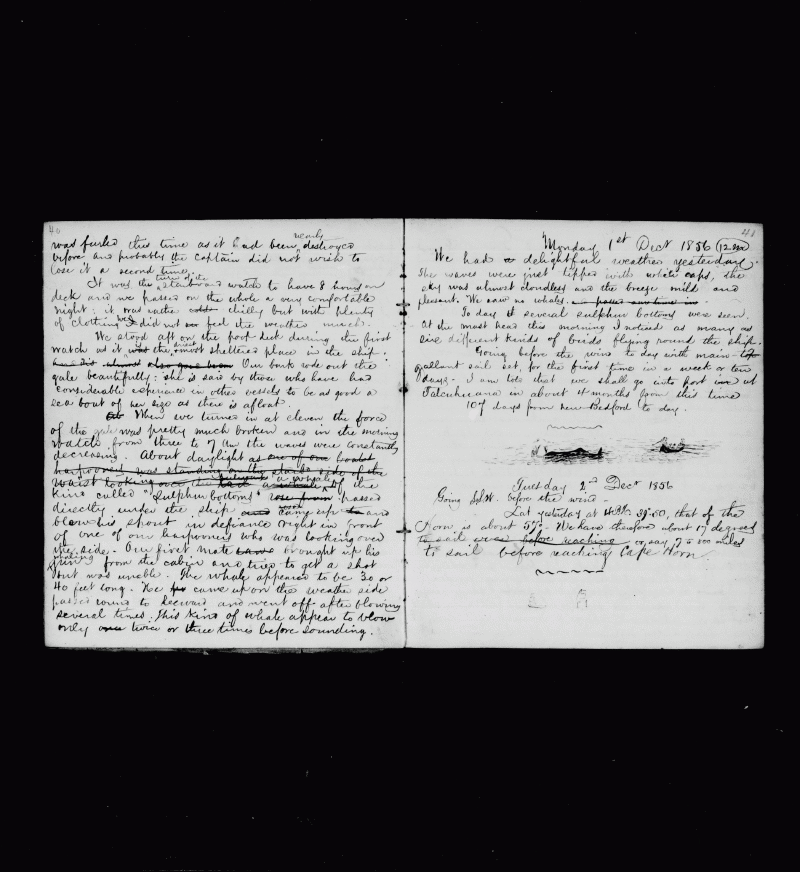 40
nearly
was furled this time as it had been destroyed
before and probably the captain did not wish to
lose it a second time.
turn of the
It was the starboard watch to have 8 hours on
deck and we passed on the whole a very comfortable
night: it was rather cold chilly but with plenty
of clothing we did not feel the weather much.
We stood aft on the poop deck during the first
watch as it was the most sheltered place in the ship.
Our bark rode out the
gale beautifully: she is said by those who have had
considerable experience in other vessels to be as good a
sea boat of her size as there is afloat.
When we turned in at eleven the force
of the gale was pretty much broken and in the morning
watch from three to 7 the waves were constantly
decreasing. About daylight as one of our boats
harpooners was standing on the side of the
waist looking over the a whale of the
kind called "Sulphur bottoms" rose from passed
directly under the ship and came up and
blew his spout in defiance right in front
of one of our harpooners who was looking over
the side. Our first mate brought up his
whaling
gun from the cabin and tried to get a shot
but was unable. The whale appeared to be 30 or
40 feet long. He came up on the weather side
passed round to leeward and went off after blowing
several times. This kind of whale appear to blow
only once twice or three times before sounding.
41
Monday 1st Dect 1856 (12.m)
We had a delightful weather yesterday.
The waves were just tipped with white caps, the
sky was almost cloudless and the breeze mild and
pleasant. We saw no whales.
To day it several sulphur bottoms were seen.
At the mast head this morning I noticed as many as
six different kinds of birds flying round the ship.
Going before the wind to day with main top
gallant sail set, for the first time in a week or ten
days. I am told that we shall go into port in at
Talcuhuana in about 4 months from this time
107 days from New Bedford to day.
Tuesday 2nd Dect 1856
Going S.S.W. before the wind –
Lat yesterday at 39.50, that of the
Horn is about 57. We have therefore about 17 degrees
to sail before reaching or say 7 or 800 miles
to sail before reaching Cape Horn